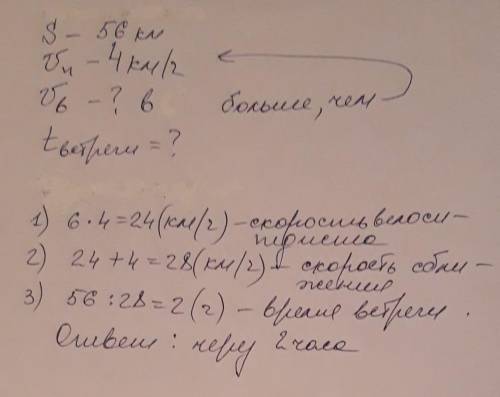 S – 56 км
Vч – 4 км/г
Vв – ? в больше, чем
tвстречи = ?
1) 6 · 4 = 24 (км/г) – скорость велоси-
педиста
2) 24 + 4 = 28 (км/г) – скорость сбли-
жения
3) 56 : 28 = 2 (г) – время встречи.
Ответ: через 2 часа